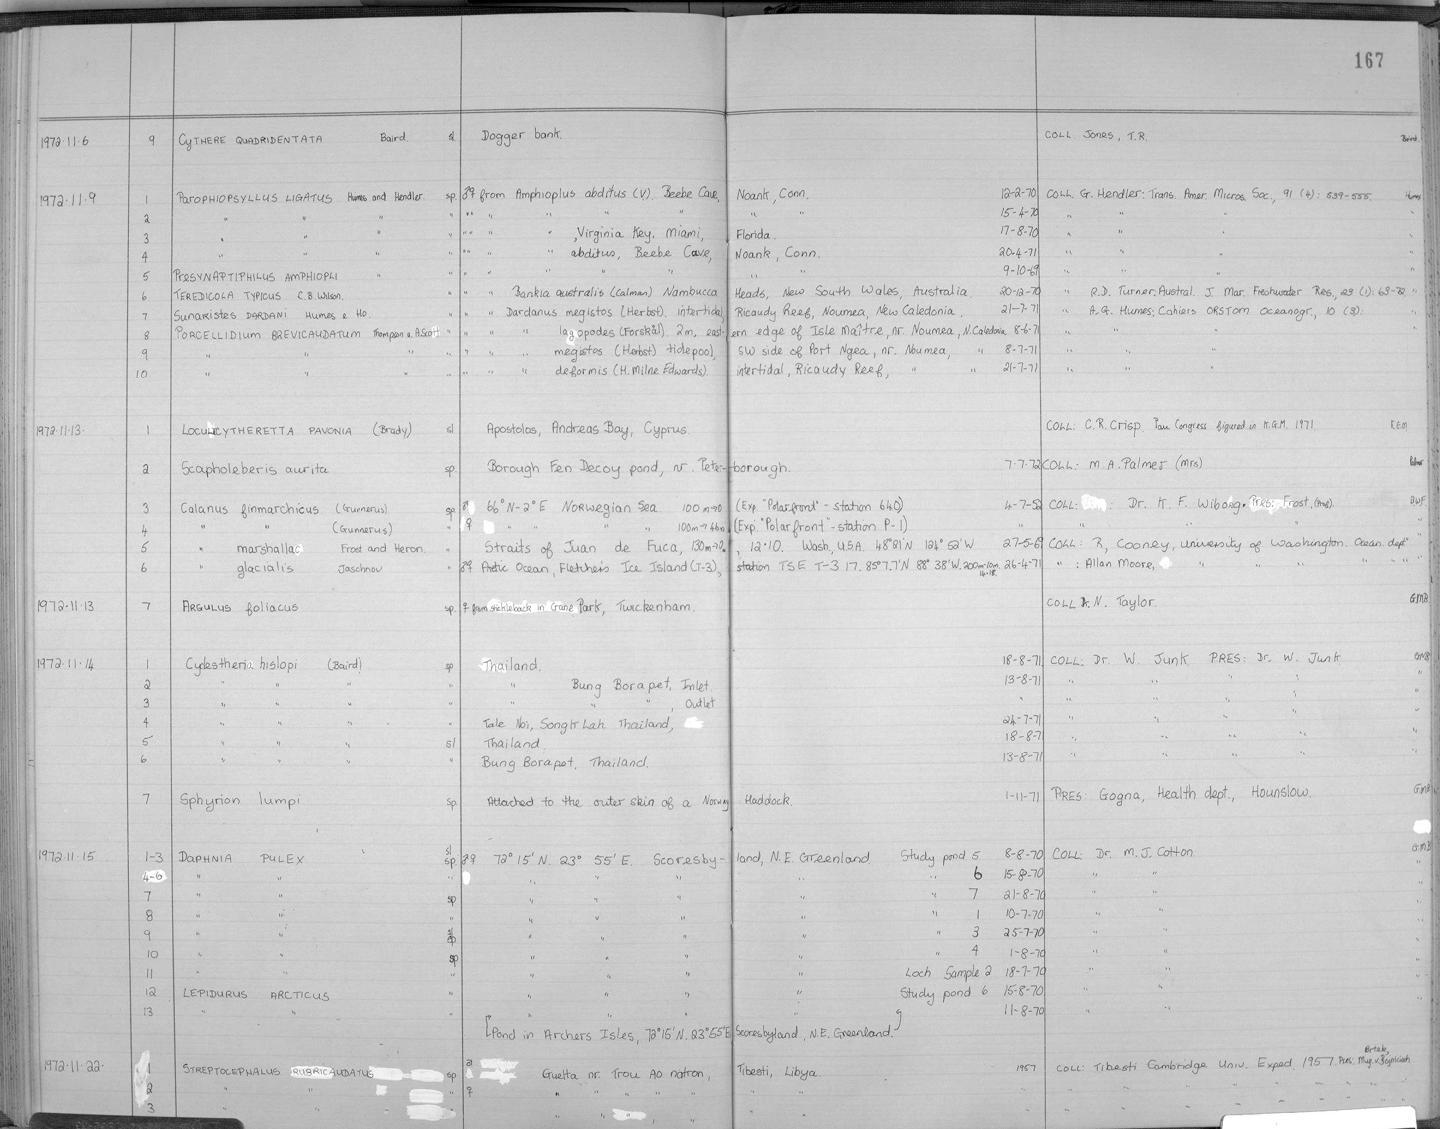 167
1972.11.6 9 CYTHERE QUADRIDENTATA Baird. sl Dogger bank. COLL. Jones, T.R. Baird.
1972.11.9 1 PAROPHIOPSYLLUS LIGATUS Humes and Hendler sp. ♂♀ from Amphioplus abditus (V). Beebe Cave, Noank, Conn. 12-2-70 COLL. G. Hendler: Trans. Amer. Micros. Soc., 91 (4): 539-555. Humes
2 " " " " "" " " " " " " 15-4-70 " " "
3 " " " " "" " " , Virginia Key, Miami, Florida. 17-8-70 " " "
4 " " " " "" " " abditus, Beebe Cave, Noank, Conn. 20-4-71 " " "
5 PRESYNAPTIPHILUS AMPHIOPLI " " " " " " " " " 9-10-69 " " "
6 TEREDICOLA TYPICUS C.B. Wilson. " "" " Bankia australis (Calman) Nambucca Heads, New South Wales, Australia 20-12-70 " R.D. Turner: Austral. J. Mar. Freshwater Res., 23 (1): 63-72 "
7 SUNARISTES DARDANI Humes & Ho. " "" " Dardanus megistos (Herbst). intertidal Ricaudy Reef, Noumea, New Caledonia, 21-7-71 " A.G. Humes: Cahiers ORSTOM Oceanogr., 10 (3):
8 PORCELLIDIUM BREVICAUDATUM Thompson & A. Scott " "" " " lagopodes (Forskål). 2m, eastern edge of Isle Maître, nr. Noumea, N. Caledonia 8-6-71 " " "
9 " " " " " " " megistos (Herbst) tidepool, SW side of Port Ngea, nr. Noumea, " 8-7-71 " " "
10 " " " " "" " " deformis (H. Milne Edwards). intertidal, Ricaudy Reef, " " 21-7-71 " " "
1972.11.13. 1 LOCULICYTHERETTA PAVONIA (Brady) sl Apostolos, Andreas Bay, Cyprus. COLL: C.R. Crisp. Pau Congress figured in K.G.M. 1971 K.G.M
2 Scapholeberis aurita sp. Borough Fen Decoy pond, nr. Peter-borough. 7-7-72 COLL: M.A. Palmer (Mrs) Palmer
3 Calanus finmarchicus (Gunnerus) sp 66° N-2° E Norwegian Sea 100m→0 (Exp. "Polarfront" - station 640) 4-7-52 COLL: Dr. K. F. Wiborg. Pres: Frost, (Mrs). BWF
4 " " (Gunnerus) " ♀ " " " 100m→46m (Exp. "Polarfront" - station P-1) " " " " "
5 " marshallae Frost and Heron. " Straits of Juan de Fuca, 130m→0, 12.10. Wash, USA. 48°21'N 124° 52' W 27-5-6 COLL: R, Cooney, University of Washington. Ocean. dept "
6 " glacialis Jaschnov " ♂♀ Arctic Ocean, Fletcher's Ice Island (T-3), station TSE T-3 17. 85°7.7'N 88° 38' W. 200m-10m 26-4-71 " : Allan Moore, " " " "
1972.11.13 7 ARGULUS foliacus sp. ♀ from stickleback in Crane Park, Twickenham. COLL K.N. Taylor. GMB
1972.11.14 1 Cyclestheria hislopi (Baird) sp Thailand. 18-8-71 COLL: Dr. W. Junk PRES: Dr. W. Junk GMB
2 " " " " " Bung Borapet, Inlet. 13-8-71 " " " " "
3 " " " " " " , Outlet " " " " " "
4 " " " " Tale Noi, Songk Lah Thailand, 24-7-71 " " " " "
5 " " " sl Thailand. 18-8-7 " " " " "
6 " " " " Bung Borapet, Thailand. 13-8-71 " " " " "
7 Sphyrion lumpi sp Attached to the outer skin of a Norway Haddock. 1-11-71 PRES: Gogna, Health dept., Hounslow. GMB
1972.11.15 1-3 DAPHNIA PULEX sl sp ♂♀ 72° 15' N. 23° 55' E. Scoresby-land, N.E. Greenland. Study pond 5. 8-8-70 COLL: Dr. M.J. Cotton. GMB
4-6 " " " " " " " " 6 15-8-70 " " "
7 " " sp " " " " " 7 21-8-70 " " "
8 " " " " " " " " 1 10-7-70 " " "
9 " " sl sp " " " " " 3 25-7-70 " " "
10 " " sp " " " " " 4 1-8-70 " " "
11 " " " " " " " Loch Sample 2 18-7-70 " " "
12 LEPIDURUS ARCTICUS " " " " " Study pond 6 15-8-70 " " "
13 " " " " " " 11-8-70 " " "
Pond in Archers Isles, 72°15'N. 23°55'E Scoresbyland, N.E. Greenland.
1972.11.22. 1 STREPTOCEPHALUS RUBRICAUDATUS sp ♂ Guelta nr. Trou Ao natron, Tibesti, Libya. 1957 COLL: Tibesti Cambridge Univ. Exped. 1957. Pres:
2 " " " ♀ " " " " " " " " " "
3 " " " " " " " " " " " " "